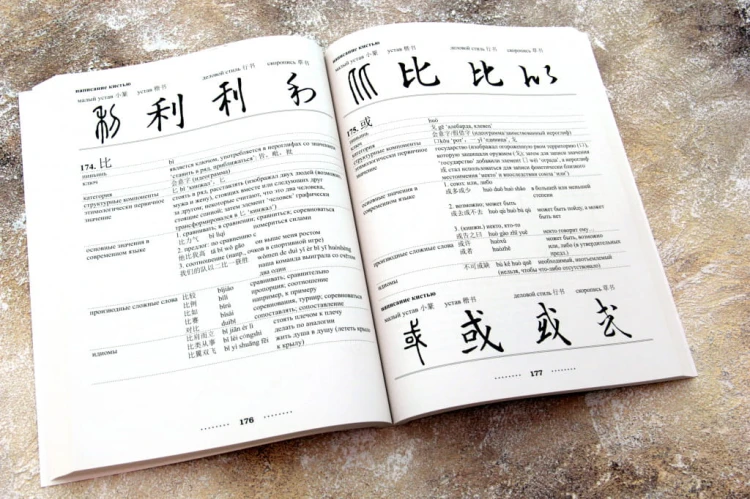 написание кистью
малый устав 小篆 устав 楷书 деловой стиль 行书 скоропись 草书
利 利 利 利
174. 比
пиньинь bǐ
ключ является ключом, употребляется в иероглифах со значением
"ставить в ряд, приближаться":
категория 会意字 (идеограмма)
структурные компоненты
этимологически первичное значение стоять в ряд, расставлять (изображал двух людей (возможно,
мужа и жену), стоящих вместе или следующих друг
за другом, некоторые считают, что это два человека,
стоящие спиной; затем элемент "человек" графически
трансформировался в 匕 "кинжал")
основные значения в современном языке 1. сравнивать; в сравнении; сравниться; соревноваться
比力气 bǐ lìqi помериться силами
2. предлог: по сравнению с
他比我高 tā bǐ wǒ gāo он выше меня ростом
3. соотношение (напр., очков в спортивной игре)
我们的队以二比一获胜 wǒmen de duì yǐ èr bǐ yī huòshèng
наша команда выиграла со счётом
два один
производные сложные слова 比较 bǐjiào сравнивать; сравнительно
比例 bǐlì пропорция; соотношение
比如 bǐrú например, к примеру
比赛 bǐsài соревнования, турнир; соревноваться
对比 duìbǐ сопоставлять, сопоставление
идиомы 比肩而立 bǐ jiān ér lì стоять плечом к плечу
比类从事 bǐ lèi cóngshì делать по аналогии
比翼双飞 bǐ yì shuāng fēi жить душа в душу (лететь крыло
к крылу)
176
написание кистью
малый устав 小篆 устав 楷书 деловой стиль 行书 скоропись 草书
比 比 比 比
175. 或
пиньинь huò
ключ 戈 gē "алебарда, клевец"
категория 会意字/假借字 (идеограмма/заимствованный иероглиф)
структурные компоненты
этимологически первичное значение государство (изображал огороженную рвом территорию
основные значения в современном языке 1. союз: или, либо
或多或少 huò duō huò shǎo в большей или меньшей
степени
2. возможно; может быть
或去或不去 huò qù huò bù qù может быть пойду, а может
быть нет
3. (книжн.) некто, кто-то
或告之曰 huò gào zhī yuē некто говорит ему...
производные сложные слова 或许 huòxǔ может быть, возможно
或者 huòzhě или, либо (в утвердительных
предл.)
идиомы 不可或缺 bù kě huò quē необходимый, неотъемлемый
(нельзя, чтобы что-либо отсутствовало)
написание кистью
малый устав 小篆 устав 楷书 деловой стиль 行书 скоропись 草书
或 或 或 或
177